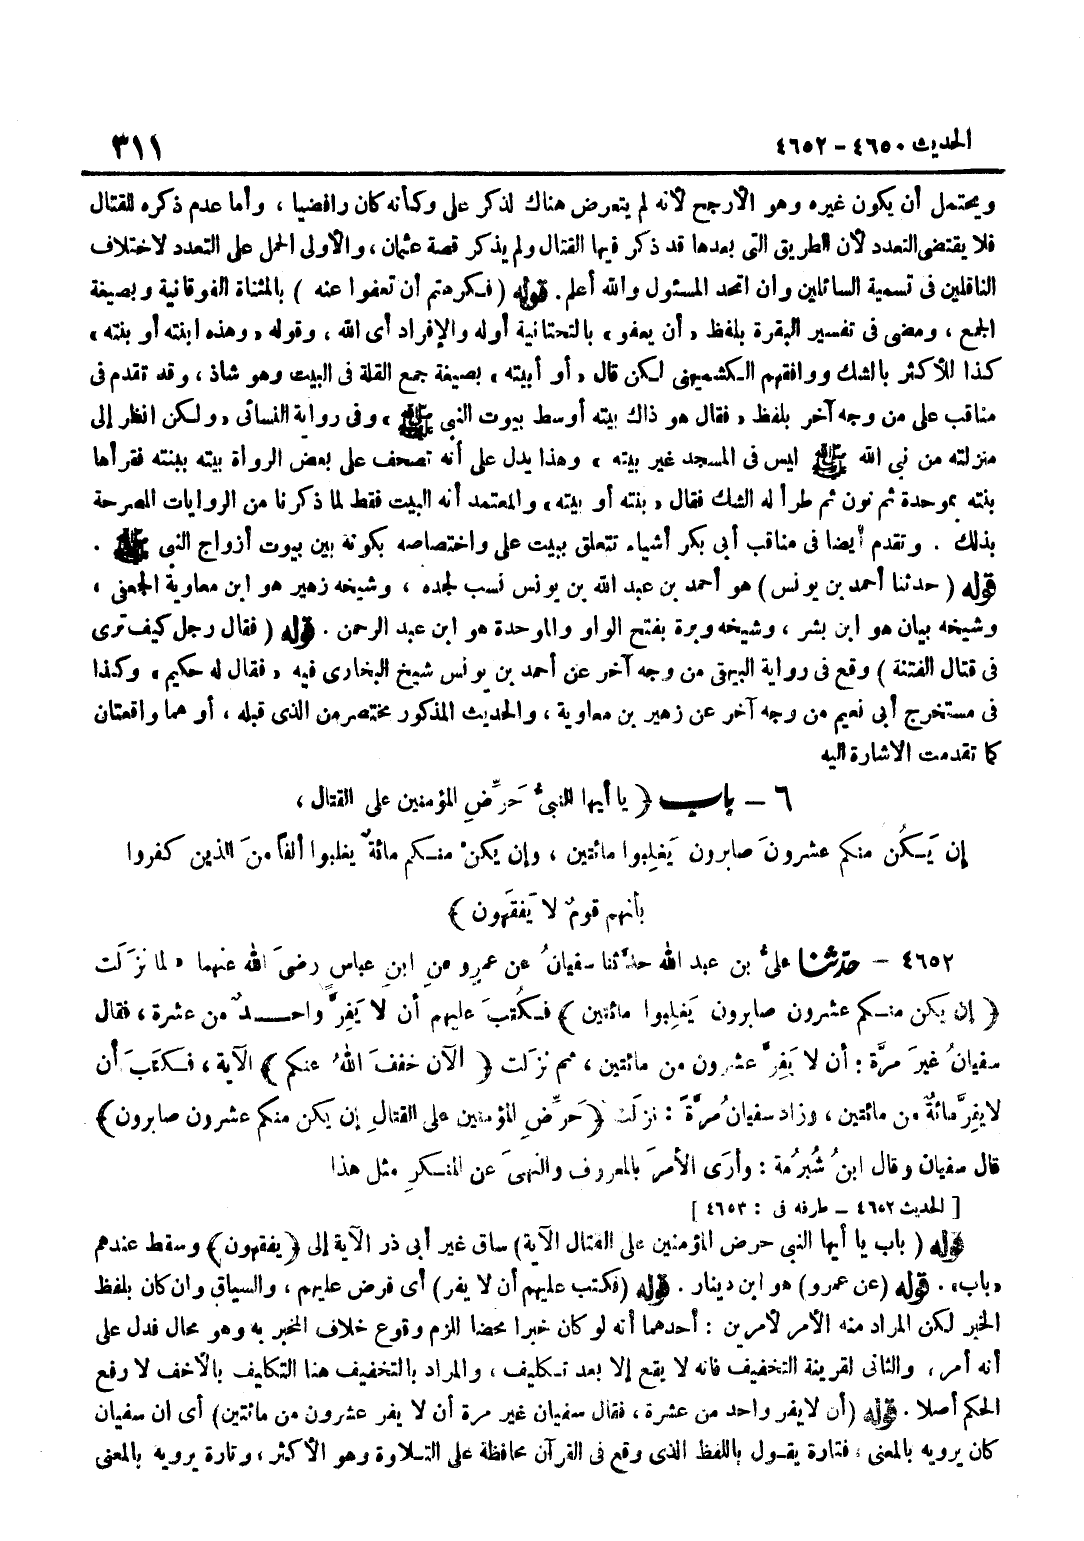 الحديث ٤٦٥٠ - ٤٦٥٢
٣١١
ويحتمل أن يكون غيره وهو الأرجح لأنه لم يتعرض هناك لذكر على وكأنه كان رافضيا ، وأما عدم ذكره للقتال
فلا يقتضى التعدد لأن الطريق التى بعدها قد ذكر فيها القتال ولم يذكر قصة عثمان ، والأولى الحمل على التعدد لاختلاف
الناقلين فى تسمية السائلين وان اتحد المسئول والله أعلم . قوله ( فكرهتم أن تعفوا عنه ) بالمثناة الفوقانية وبصيغة
الجمع ، ومضى فى تفسير البقرة بلفظ « أن يعفو » بالتحتانية أوله والإفراد أى الله ، وقوله « وهذه ابنته أو بنته »
كذا للأكثر بالشك ووافقهم الكشميهنى لكن قال « أو أبيته » بصيغة جمع القلة فى البيت وهو شاذ ، وقد تقدم فى
مناقب على من وجه آخر بلفظ « فقال هو ذاك بيته أوسط بيوت النبي ﷺ » وفى رواية النسائى « ولكن انظر إلى
منزلته من نبي الله ﷺ ليس فى المسجد غير بيته » وهذا يدل على أنه تصحف على بعض الرواة بيته ببنته فقرأها
بنته بموحدة ثم نون ثم طرأ له الشك فقال « بنته أو بيته » والمعتمد أنه البيت فقط لما ذكرنا من الروايات المصرحة
بذلك . وتقدم أيضا فى مناقب أبى بكر أشياء تتعلق ببيت على واختصاصه بكونه بين بيوت أزواج النبي ﷺ .
قوله ( حدثنا أحمد بن يونس ) هو أحمد بن عبد الله بن يونس نسب لجده ، وشيخه زهير هو ابن معاوية الجعفى ،
وشيخه بيان هو ابن بشر ، وشيخه وبرة بفتح الواو والموحدة هو ابن عبد الرحمن . قوله ( فقال رجل كيف ترى
فى قتال الفتنة ) وقع فى رواية البيهقى من وجه آخر عن أحمد بن يونس شيخ البخارى فيه « فقال له حكيم » وكذا
فى مستخرج أبى نعيم من وجه آخر عن زهير بن معاوية ، والحديث المذكور مختصر من الذى قبله ، أو هما واقعتان
كما تقدمت الاشارة اليه
٦ - باب ﴿ يا أيها النبىُّ حَرِّضِ المؤمنين على القتال ،
إن يَكُن منكم عشرونَ صابرون يَغلِبوا مائتين ، وإن يكنْ منكم مائةٌ يغلبوا ألفاً منَ الذين كفروا
بأنهم قومٌ لا يَفقَهون ﴾
٤٦٥٢ - حدّثنا علىُّ بن عبد الله حدَّثنا سفيانُ عن عمرٍو عنِ ابنِ عباس رضىَ الله عنهما « لما نزَلَت
﴿ إن يكن منكم عشرون صابرون يَغلِبوا مائتين ﴾ فكُتبَ عليهم أن لا يَفِرَّ واحــدٌ من عشرة ، فقال
سفيانُ غيرَ مرَّة : أن لا يَفِرَّ عشرون من مائتين ، ثم نزلت ﴿ الآن خففَ اللهُ عنكم ﴾ الآية ، فكتَبَ أن
لا يفرَّ مائةٌ من مائتين ، وزاد سفيانُ مرَّةً : نزلَت ﴿ حَرِّضِ المؤمنين على القتالِ إن يكن منكم عشرون صابرون ﴾
قال سفيان وقال ابنُ شُبرُمة : وأرَى الأمرَ بالمعروف والنهىَ عن المنكرِ مثل هذا
[ الحديث ٤٦٥٢ - طرفه فى : ٤٦٥٣ ]
قوله ( باب يا أيها النبي حرض المؤمنين على القتال الآية ) ساق غير أبى ذر الآية إلى ﴿ يفقهون ﴾ وسقط عندهم
« باب » . قوله ( عن عمرو ) هو ابن دينار . قوله ( فكتب عليهم أن لا يفر ) أى فرض عليهم ، والسياق وان كان بلفظ
الخبر لكن المراد منه الأمر لأمرين : أحدهما أنه لو كان خبرا محضا للزم وقوع خلاف المخبر به وهو محال فدل على
أنه أمر ، والثانى لقرينة التخفيف فانه لا يقع إلا بعد تكليف ، والمراد بالتخفيف هنا التكليف بالأخف لا رفع
الحكم أصلا . قوله ( أن لا يفر واحد من عشرة ، فقال سفيان غير مرة أن لا يفر عشرون من مائتين ) أى ان سفيان
كان يرويه بالمعنى ، فتارة يقول باللفظ الذى وقع فى القرآن محافظة على التلاوة وهو الأكثر ، وتارة يرويه بالمعنى